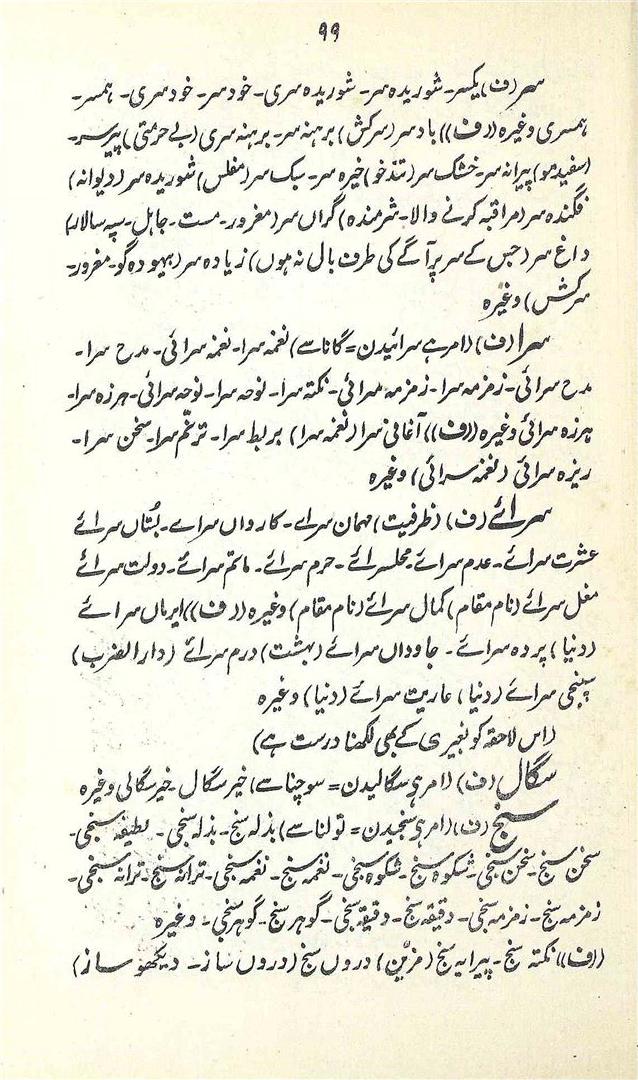 ۹۹
سر (ف) یکسر۔ شوریدہ سر۔ شوریدہ سری۔ خود سر۔ خود سری۔ ہمسر۔
ہمسری وغیرہ ((ف)) باد سر (سرکش) برہنہ سر۔ برہنہ سری (بے حرمتی) پیرسر۔
(سفید مو) پیرانہ سر۔ خشک سر (تند خو) خیرہ سر۔ سبک سر (مفلس) شوریدہ سر (دیوانہ)
فگندہ سر (مراقبہ کرنے والا۔ شرمندہ) گراں سر (مغرور۔ مست۔ جاہل۔ سپہ سالار)
داغ سر (جس کے سر پر آگے کی طرف بال نہ ہوں) زیادہ سر (بیہودہ گو۔ مغرور۔
سرکش) وغیرہ
سرا (ف) (امر ہے سرائیدن = گانا سے) نغمہ سرا۔ نغمہ سرائی۔ مدح سرا۔
مدح سرائی۔ زمزمہ سرا۔ زمزمہ سرائی۔ نکتہ سرا۔ نوحہ سرا۔ نوحہ سرائی۔ ہرزہ سرا۔
ہرزہ سرائی وغیرہ ((ف)) آغانی سرا (نغمہ سرا) بربط سرا۔ ترنّم سرا۔ سخن سرا۔
ریزہ سرائی (نغمہ سرائی) وغیرہ
سرائے (ف) (ظرفیت) مہمان سرائے۔ کارواں سرائے۔ بُستاں سرائے
عشرت سرائے۔ عدم سرائے۔ مجلسرائے۔ حرم سرائے۔ ماتم سرائے۔ دولت سرائے
مغل سرائے (نام مقام) کمال سرائے (نام مقام) وغیرہ ((ف)) ایرماں سرائے
(دنیا) پردہ سرائے۔ جاوداں سرائے (بہشت) درم سرائے (دار الضرب)
سپنجی سرائے (دنیا) عاریت سرائے (دنیا) وغیرہ
(اس لاحقہ کو بغیر ی کے بھی لکھنا درست ہے)
سگال (ف) (امر ہے سگالیدن = سوچنا سے) خیر سگال۔ خیر سگالی وغیرہ
سنج (ف) (امر ہے سنجیدن = تولنا سے) بذلہ سنج۔ بذلہ سنجی۔ لطیفہ سنجی۔
سخن سنج۔ سخن سنجی۔ شکوہ سنج۔ شکوہ سنجی۔ نغمہ سنج۔ نغمہ سنجی۔ ترانہ سنج۔ ترانہ سنجی۔
زمزمہ سنج۔ زمزمہ سنجی۔ دقیقہ سنج۔ دقیقہ سنجی۔ گوہر سنج۔ گوہر سنجی۔ وغیرہ
((ف)) نکتہ سنج۔ پیرایہ سنج (مزیّن) دروں سنج (دروں ساز۔ دیکھو ساز)